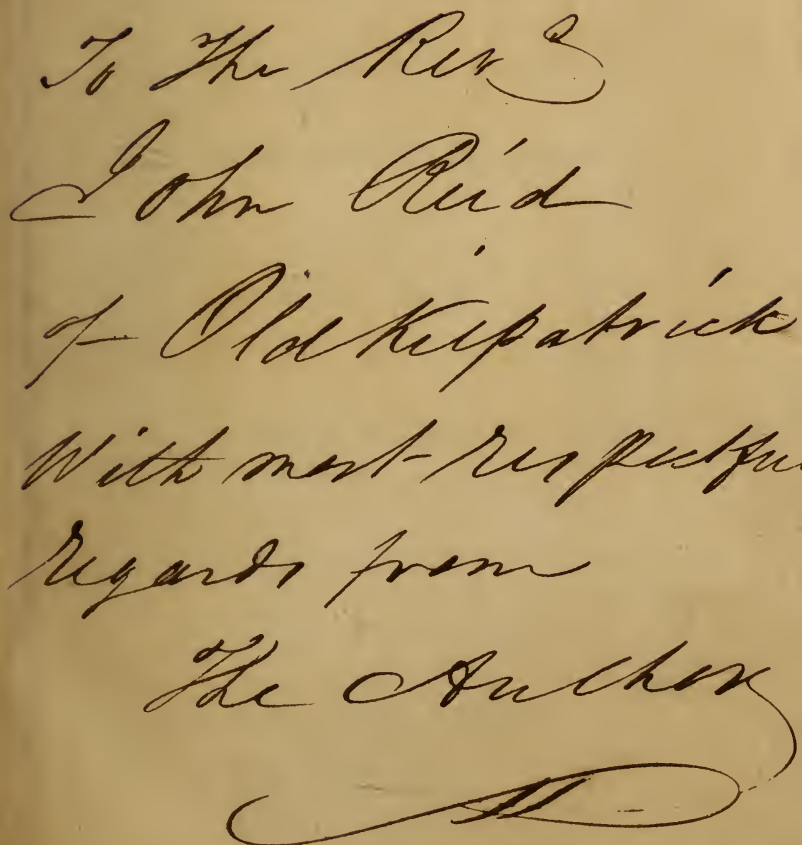 To The Revd
John Reid
of Old Kilpatrick
With most respectful
regards from
The Author